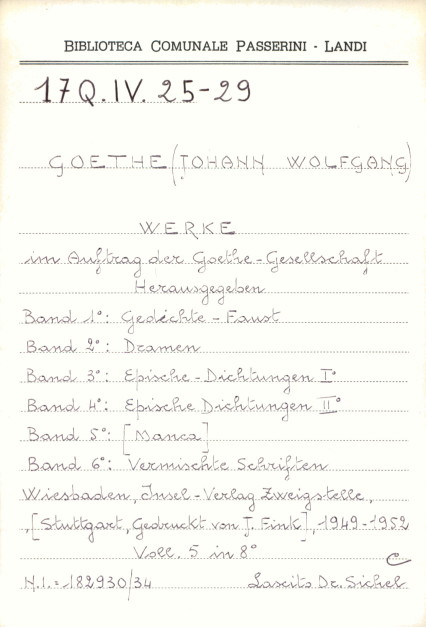 BIBLIOTECA COMUNALE PASSERINI - LANDI
17 Q. IV. 25-29
GOETHE (JOHANN WOLFGANG)
WERKE
im Auftrag der Goethe-Gesellschaft
Herausgegeben
Band 1°: Gedéchte - Faust
Band 2°: Dramen
Band 3°: Epische - Dichtungen I°
Band 4°: Epische Dichtungen II°
Band 5°: [Manca]
Band 6°: Vermischte Schriften
Wiesbaden, Insel-Verlag Zweigstelle,
,[Stuttgart, Gedruckt von J. Fink], 1949-1952
Voll. 5 in 8°
C
N.I. = 182930/34 Lascits Dr. Sichel